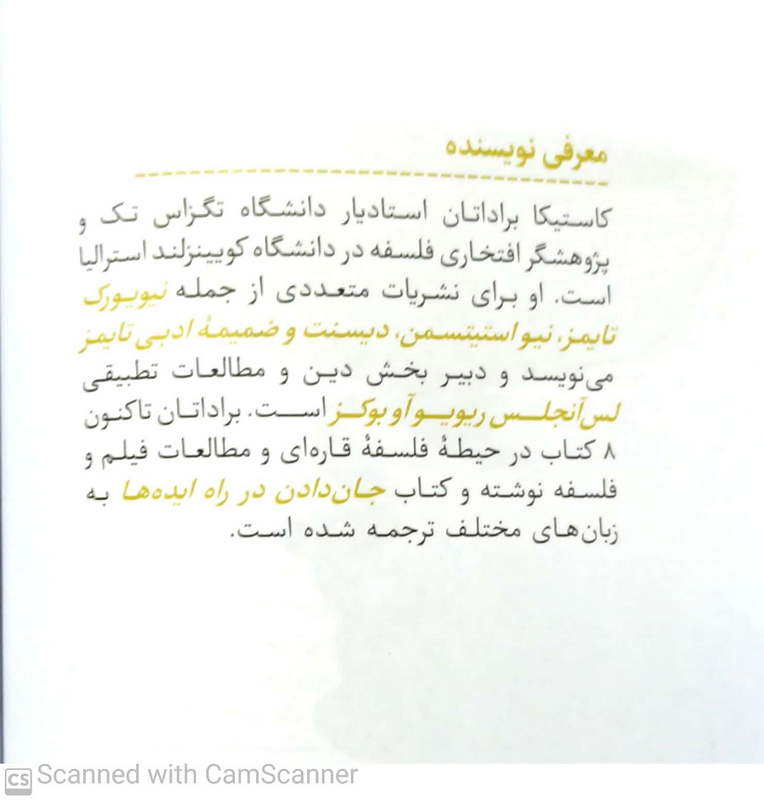 معرفی نویسنده
کاستیکا براداتان استادیار دانشگاه تگزاس تک و
پژوهشگر افتخاری فلسفه در دانشگاه کویینزلند استرالیا
است. او برای نشریات متعددی از جمله نیویورک
تایمز، نیو استیتسمن، دیسنت و ضمیمهٔ ادبی تایمز
می‌نویسد و دبیر بخش دین و مطالعات تطبیقی
لس‌آنجلس ریویو آو بوکز است. براداتان تاکنون
۸ کتاب در حیطهٔ فلسفهٔ قاره‌ای و مطالعات فیلم و
فلسفه نوشته و کتاب جان‌دادن در راه ایده‌ها به
زبان‌های مختلف ترجمه شده است.
CS Scanned with CamScanner